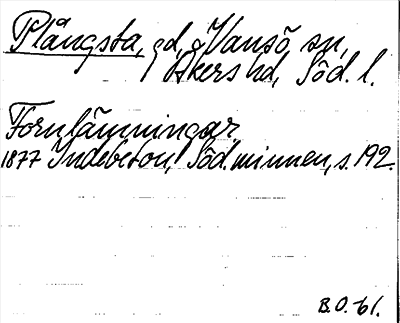 Plångsta, gd, Vansö sn,
Åkers hd, Söd. l.
Fornlämningar.
1877 Indebetou, Söd. minnen, s. 192.
B.O. 61.